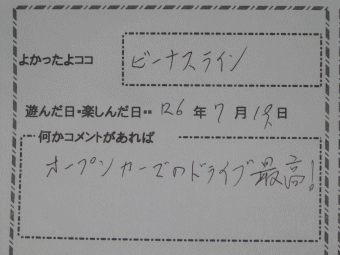 よかったよココ ビーナスライン
遊んだ日・楽しんだ日・・ 年 7 月 日
何かコメントがあれば
オープンカーでのドライブ最高!